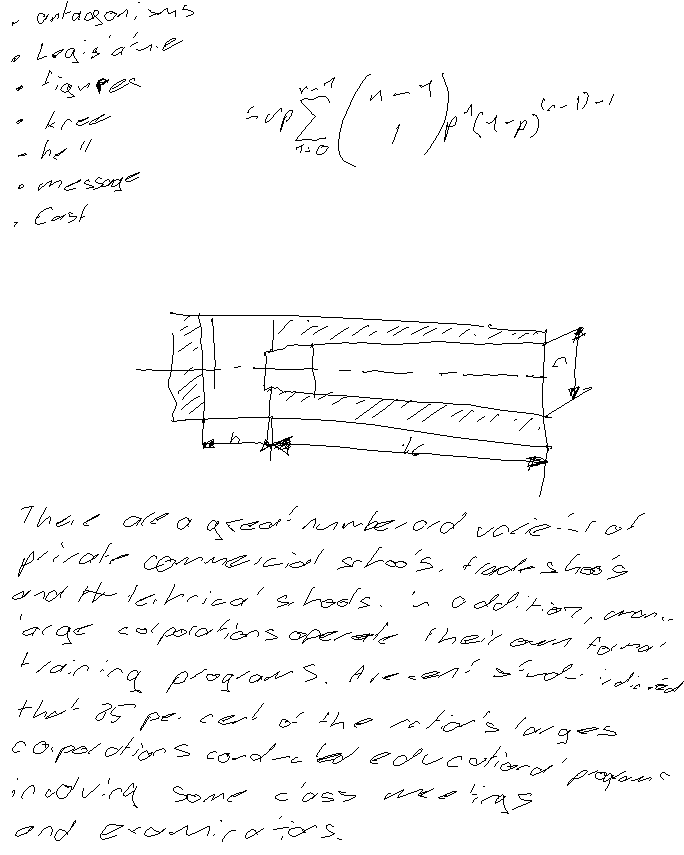 • antagonisms
• Legislative
• figures
• knee
• hell
• message
• Cast
= np ∑ (n-1 1) p^1 (1-p)^(n-1)-1
n-1
1=0
h
There are a great number and varieties of
private commercial schools, trade shools
and technical schools. In addition, many
large corporations operate their own formal
training programs. A recent study indicated
that 85 per cent of the nation's larges
corporations conducted educational programs
involving some class meetings
and examinations.